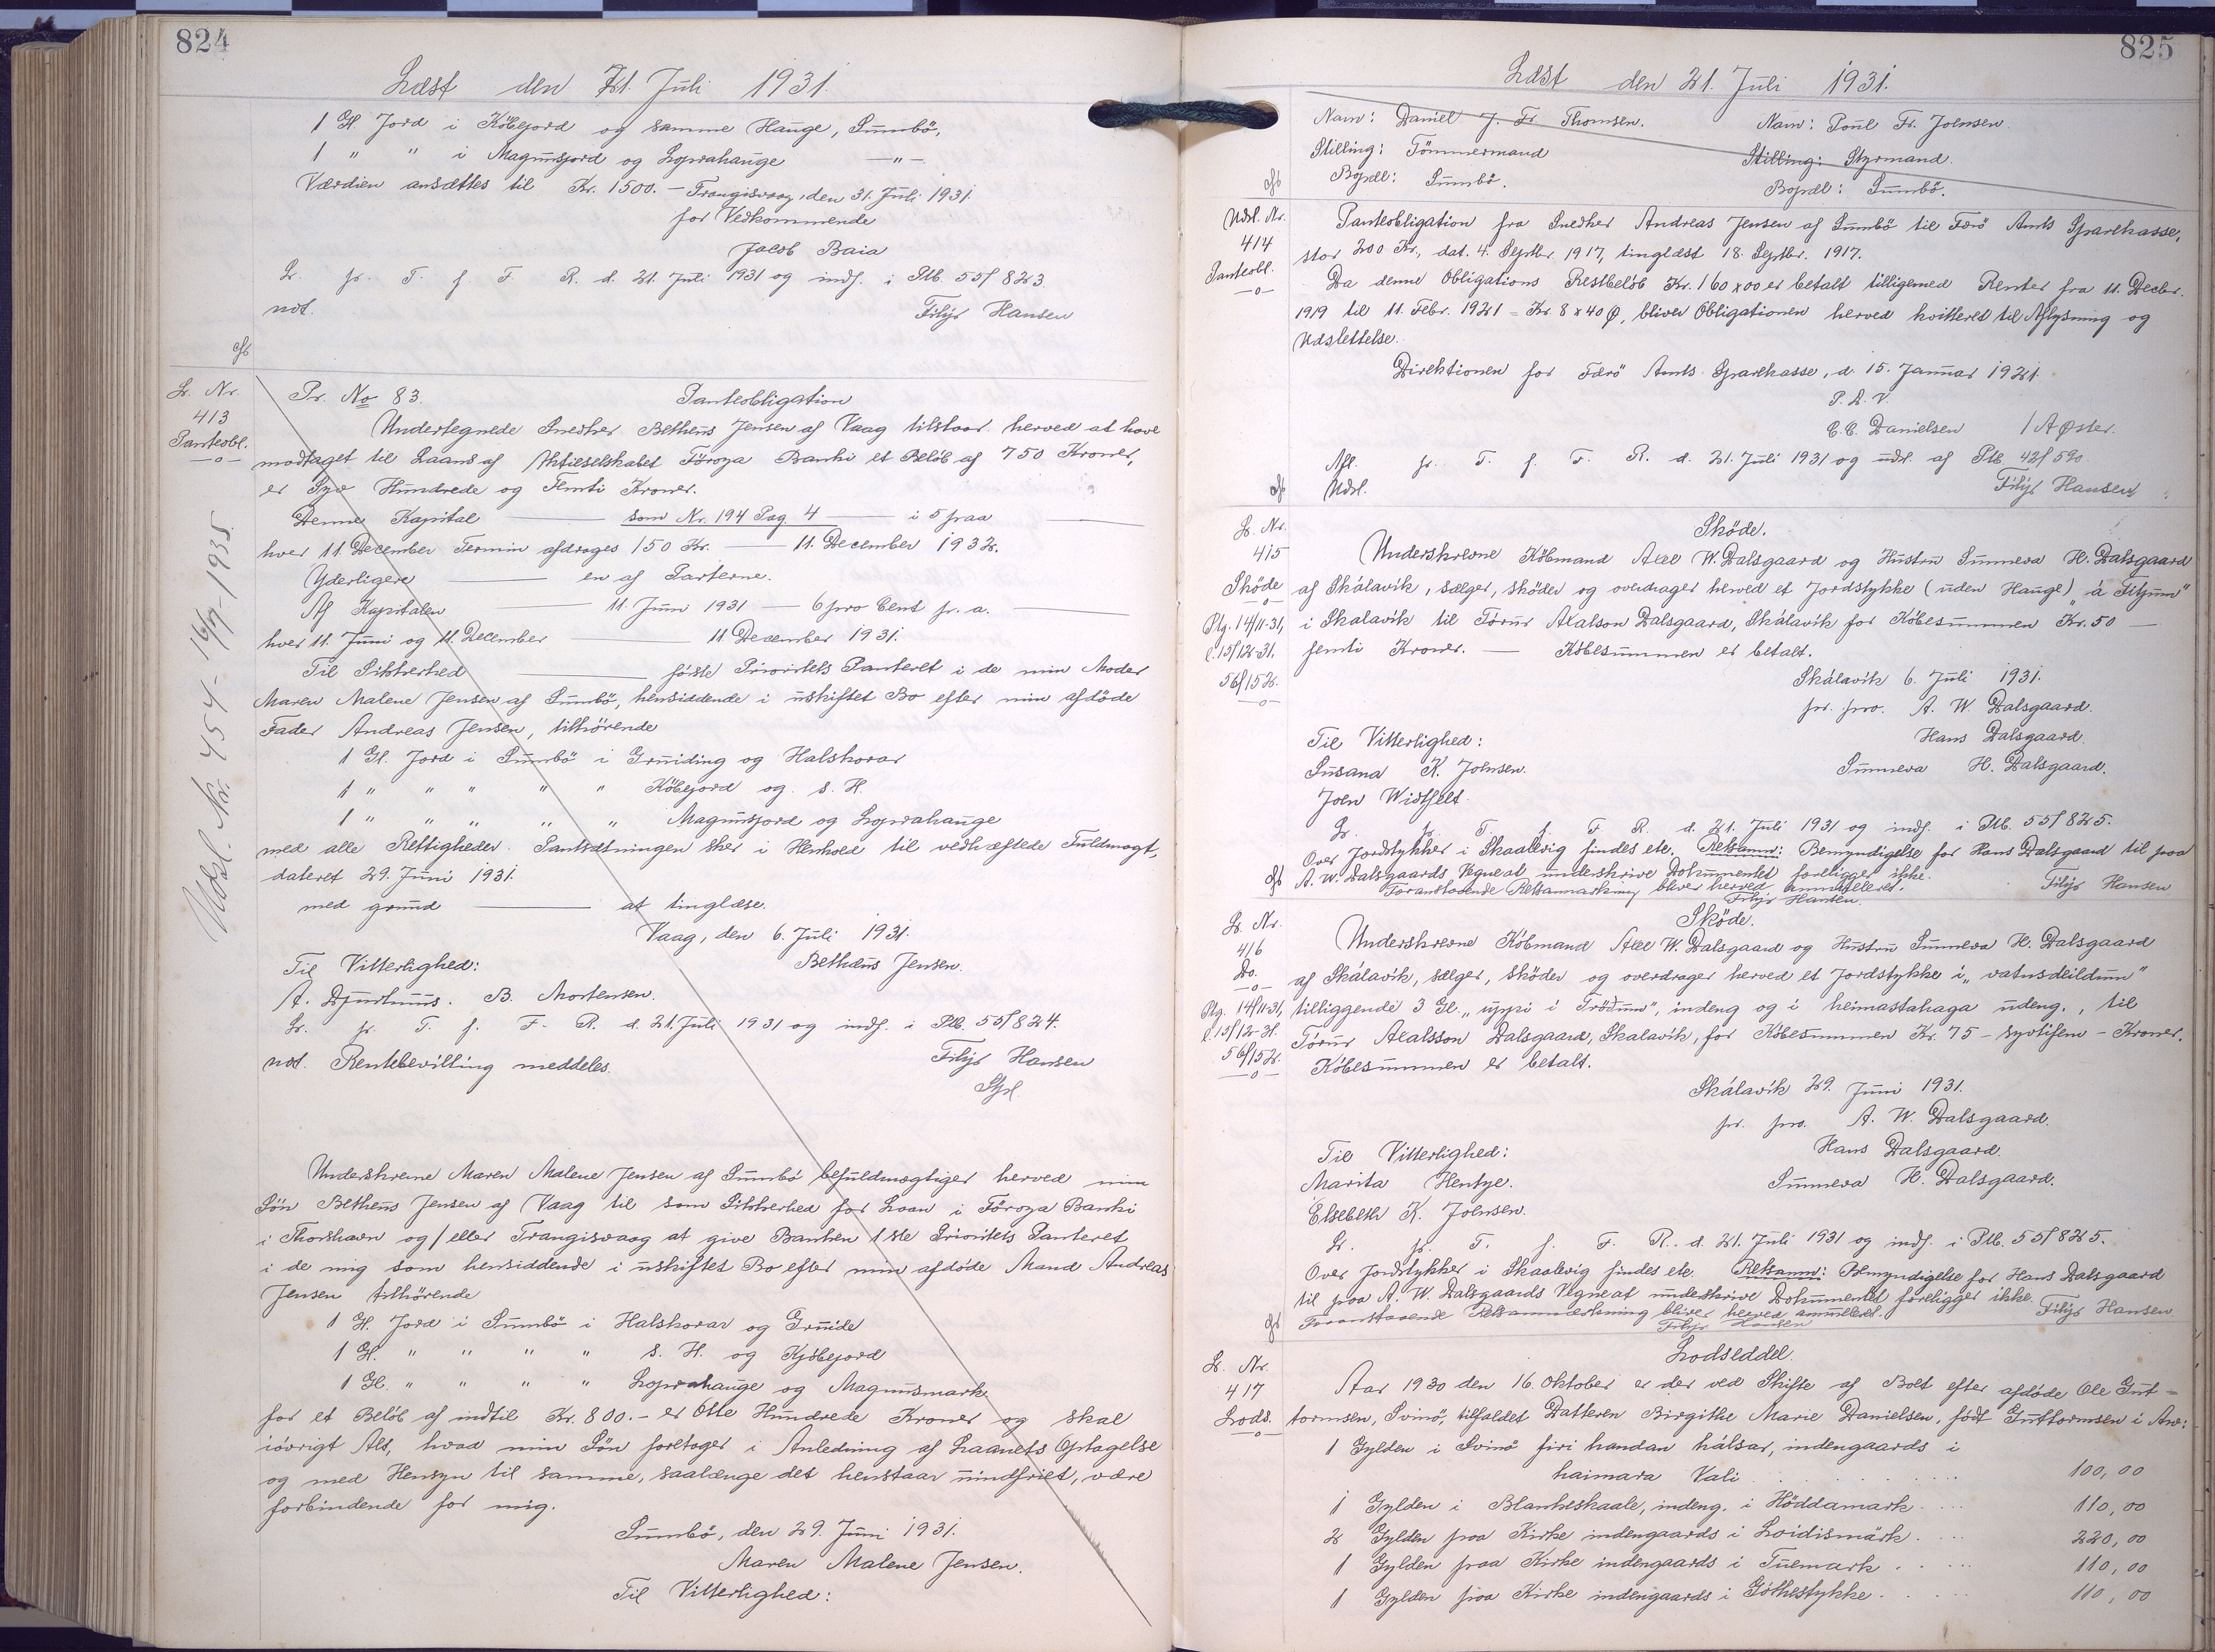 824
Læst den 21. Juli 1931.
1 Gl. Jord i Köbejord og samme Hauge, Sumbö,
1 " " i Magnusjord og Loprahauge —"—
Værdien ansættes til Kr. 1500.— Trangisvaag, den 31. Juli 1931.
for Vedkommende
Jacob Baia
L. pr. T. f. F. R. d. 21. Juli 1931 og indf. i Ptb. 55/823
not. Filip Hansen
L. Nr. 413 Panteobl.
Udsl. Nr. 454 - 16/7-1935.
Pr. No 83. Panteobligation
Undertegnede Snedker Bethæus Jensen af Vaag tilstaar herved at have
modtaget til Laans af Aktieselskabet Föroya Banki et Beløb af 750 Kroner,
er Syv Hundrede og Femti Kroner.
Denne Kapital — som Nr. 194 Pag. 4 — i 5 paa —
hver 11. December Termin afdrages 150 Kr. — 11. December 1932.
Yderligere — en af Parterne.
Af Kapitalen — 11. Juni 1931 — 6 pro Cent p. a. —
hver 11. Juni og 11. December — 11. December 1931.
Til Sikkerhed — förste Prioritets Panteret i de min Moder
Maren Malene Jensen af Sumbö, hensiddende i uskiftet Bo efter min afdöde
Fader Andreas Jensen, tilhörende
1 Gl. Jord i Sumbö i Gruiding og Halskorar
1 " " " " " Köbejord og s. H.
1 " " " " " Magnusjord og Loprahauge
med alle Rettigheder. Pantsætningen sker i Henhold til vedhæftede Fuldmagt,
dateret 29. Juni 1931.
med grund — at tinglæse.
Vaag, den 6. Juli 1931.
Til Vitterlighed: Bethæus Jensen.
A. Djurhuus. B. Mortensen.
L. pr. T. f. F. R. d. 21. Juli 1931 og indf. i Ptb. 55/824.
not. Rentebevilling meddeles. Filip Hansen
Stpl.
Underskrevne Maren Malene Jensen af Sumbö befuldmægtiger herved min
Sön Bethæus Jensen af Vaag til som Sikkerhed for Laan i Föroya Banki
i Thorshavn og/eller Trangisvaag at give Banken 1ste Prioritets Panteret
i de mig som hensiddende i uskiftet Bo efter min afdöde Mand Andreas
Jensen tilhörende
1 Gl. Jord i Sumbö i Halskorar og Gruide
1 Gl. " " " " s. H. og Kjöbejord
1 Gl. " " " " Loprahauge og Magnusmark
for et Beløb af indtil Kr. 800.— er Otte Hundrede Kroner og skal
iövrigt Alt, hvad min Sön foretager i Anledning af Laanets Optagelse
og med Hensyn til samme, saalænge det henstaar uindfriet, være
forbindende for mig.
Sumbö, den 29. Juni 1931.
Maren Malene Jensen.
Til Vitterlighed:
825
Læst den 21. Juli 1931.
Navn: Daniel J. Fr. Thomsen. Navn: Poul Fr. Joensen.
Stilling: Tömmermand Stilling: Styrmand.
Bopæl: Sumbö. Bopæl: Sumbö.
Udsl. Nr. 414 Panteobl.
Panteobligation fra Snedker Andreas Jensen af Sumbö til Færö Amts Sparekasse,
stor 200 Kr., dat. 4. Septbr. 1917, tinglæst 18. Septbr. 1917.
Da denne Obligations Restbelöb Kr. 160 x 00 er betalt tilligemed Renter fra 11. Decbr.
1919 til 11. Febr. 1921 = Kr. 8 x 40 Ø, bliver Obligationen herved kvitteret til Aflysning og
Udslettelse.
Direktionen for Færö Amts Sparekasse, d. 15. Januar 1921.
P. D. V.
C. C. Danielsen / A Øster.
Afl. pr. T. f. F. R. d. 21. Juli 1931 og udsl. af Ptb. 42/590
Udsl. Filip Hansen
L. Nr. 415 Sköde
Ptg. 14/11-31, l. 15/12-31. 56/152.
Sköde.
Underskrevne Köbmand Axel W. Dalsgaard og Hustru Sunneva H. Dalsgaard
af Skálavík, sælger, sköder og overdrager herved et Jordstykke (uden Hauge) "á Fitjum"
i Skálavík til Tórur Axalson Dalsgaard, Skálavík for Köbesummen Kr. 50 —
femti Kroner. — Köbesummen er betalt.
Skálavík 6. Juli 1931.
pr. pro. A. W. Dalsgaard.
Til Vitterlighed: Hans Dalsgaard.
Susana K. Joensen. Sunneva H. Dalsgaard.
Joen Widtfelt.
L. pr. T. f. F. R. d. 21. Juli 1931 og indf. i Ptb. 55/825.
Over Jordstykker i Skaalevig findes ete. Retsanm: Bemyndigelse for Hans Dalsgaard til paa
A. W. Dalsgaards Vegne at underskrive Dokumentet foreligger ikke. Filip Hansen
Foranstaaende Retsanmærkning bliver herved annulleret.
Filip Hansen.
L. Nr. 416 Do.
Ptg. 14/11-31, l. 15/12-31. 56/152.
Sköde.
Underskrevne Köbmand Axel W. Dalsgaard og Hustru Sunneva H. Dalsgaard
af Skálavík, sælger, sköder og overdrager herved et Jordstykke í "vatnsdeildum"
tilliggende 3 Gl. "uppi i Tröðum", indeng og i heimastahaga udeng., til
Tórur Axalsson Dalsgaard, Skalavík, for Köbesummen Kr. 75 – syvtifem – Kroner.
Köbesummen er betalt.
Skálavík 29. Juni 1931.
pr. pro. A. W. Dalsgaard.
Til Vitterlighed: Hans Dalsgaard.
Marita Hentze. Sunneva H. Dalsgaard.
Elsebeth K. Joensen.
L. pr. T. f. F. R. d. 21. Juli 1931 og indf. i Ptb. 55/825.
Over Jordstykker i Skaalevig findes ete. Retsanm: Bemyndigelse for Hans Dalsgaard
til paa A. W. Dalsgaards Vegne at underskrive Dokumentet foreligger ikke. Filip Hansen.
Foranstaaende Retsanmærkning bliver herved annulleret.
Filip Hansen
L. Nr. 417 Lods.
Lodseddel.
Aar 1930 den 16. Oktober er der ved Skifte af Boet efter afdöde Ole Gut-
tormsen, Svinö, tilfaldet Datteren Birgithe Marie Danielsen, född Guttormsen i Arv:
1 Gylden i Svinö firi handan hálsar, indengaards i
haimara Vali 100,00
1 Gylden i Blankeskaale, indeng. i Höddamark 110,00
2 Gylden paa Kirke indengaards i Loidismärk 220,00
1 Gylden paa Kirke indengaards i Tuemark 110,00
1 Gylden paa Kirke indengaards i Göthestykke 110,00